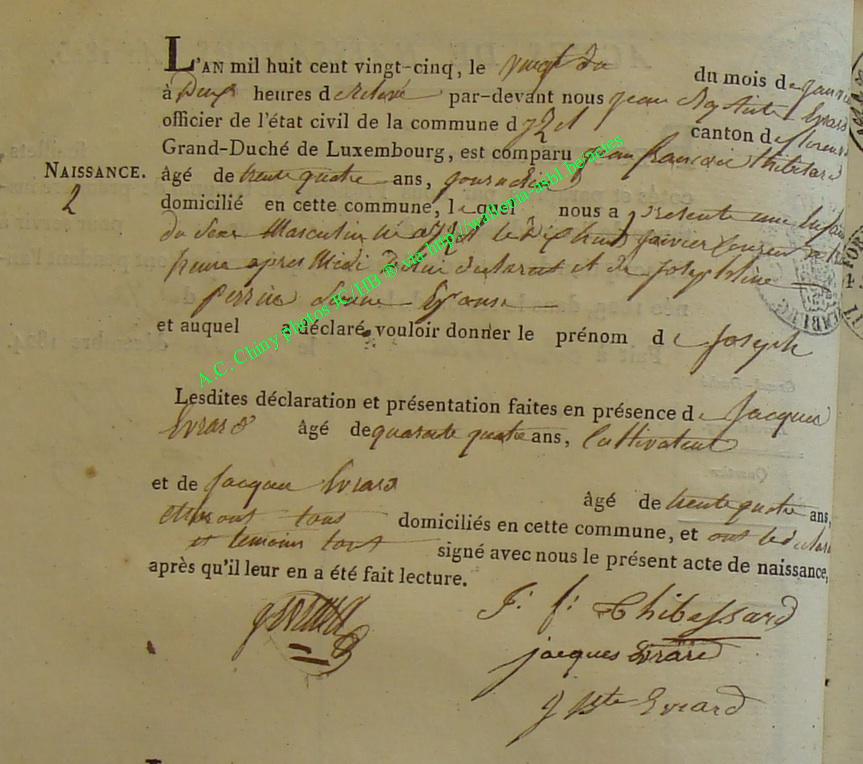 L'AN mil huit cent vingt-cinq, le vingt du mois de
à Deux heures de Relevé par-devant nous jean Baptiste Evrard
officier de l'état civil de la commune d'izel canton de
Grand-Duché de Luxembourg, est comparu jean françois thibessard
NAISSANCE. âgé de trente quatre ans, journalier
2
domicilié en cette commune, lequel nous a présenté une Enfant
du sexe Masculin né a izel le dix huit janvier
heure apres Midi de lui declarant et de Josephine
Son Epouse
et auquel a déclaré vouloir donner le prénom de Joseph
Lesdites déclaration et présentation faites en présence de Jacques
Evrard âgé de quarante quatre ans, Cultivateur
et de Jacques Evrard âgé de trente quatre ans,
tous domiciliés en cette commune, et ont le declarant
et temoins tous signé avec nous le présent acte de naissance,
après qu'il leur en a été fait lecture.
J. f. Thibessard
jacques Evrard
J Bte Evrard
A.C. Chiny photos JC/HB ® via http://wallonia-asbl be/actes